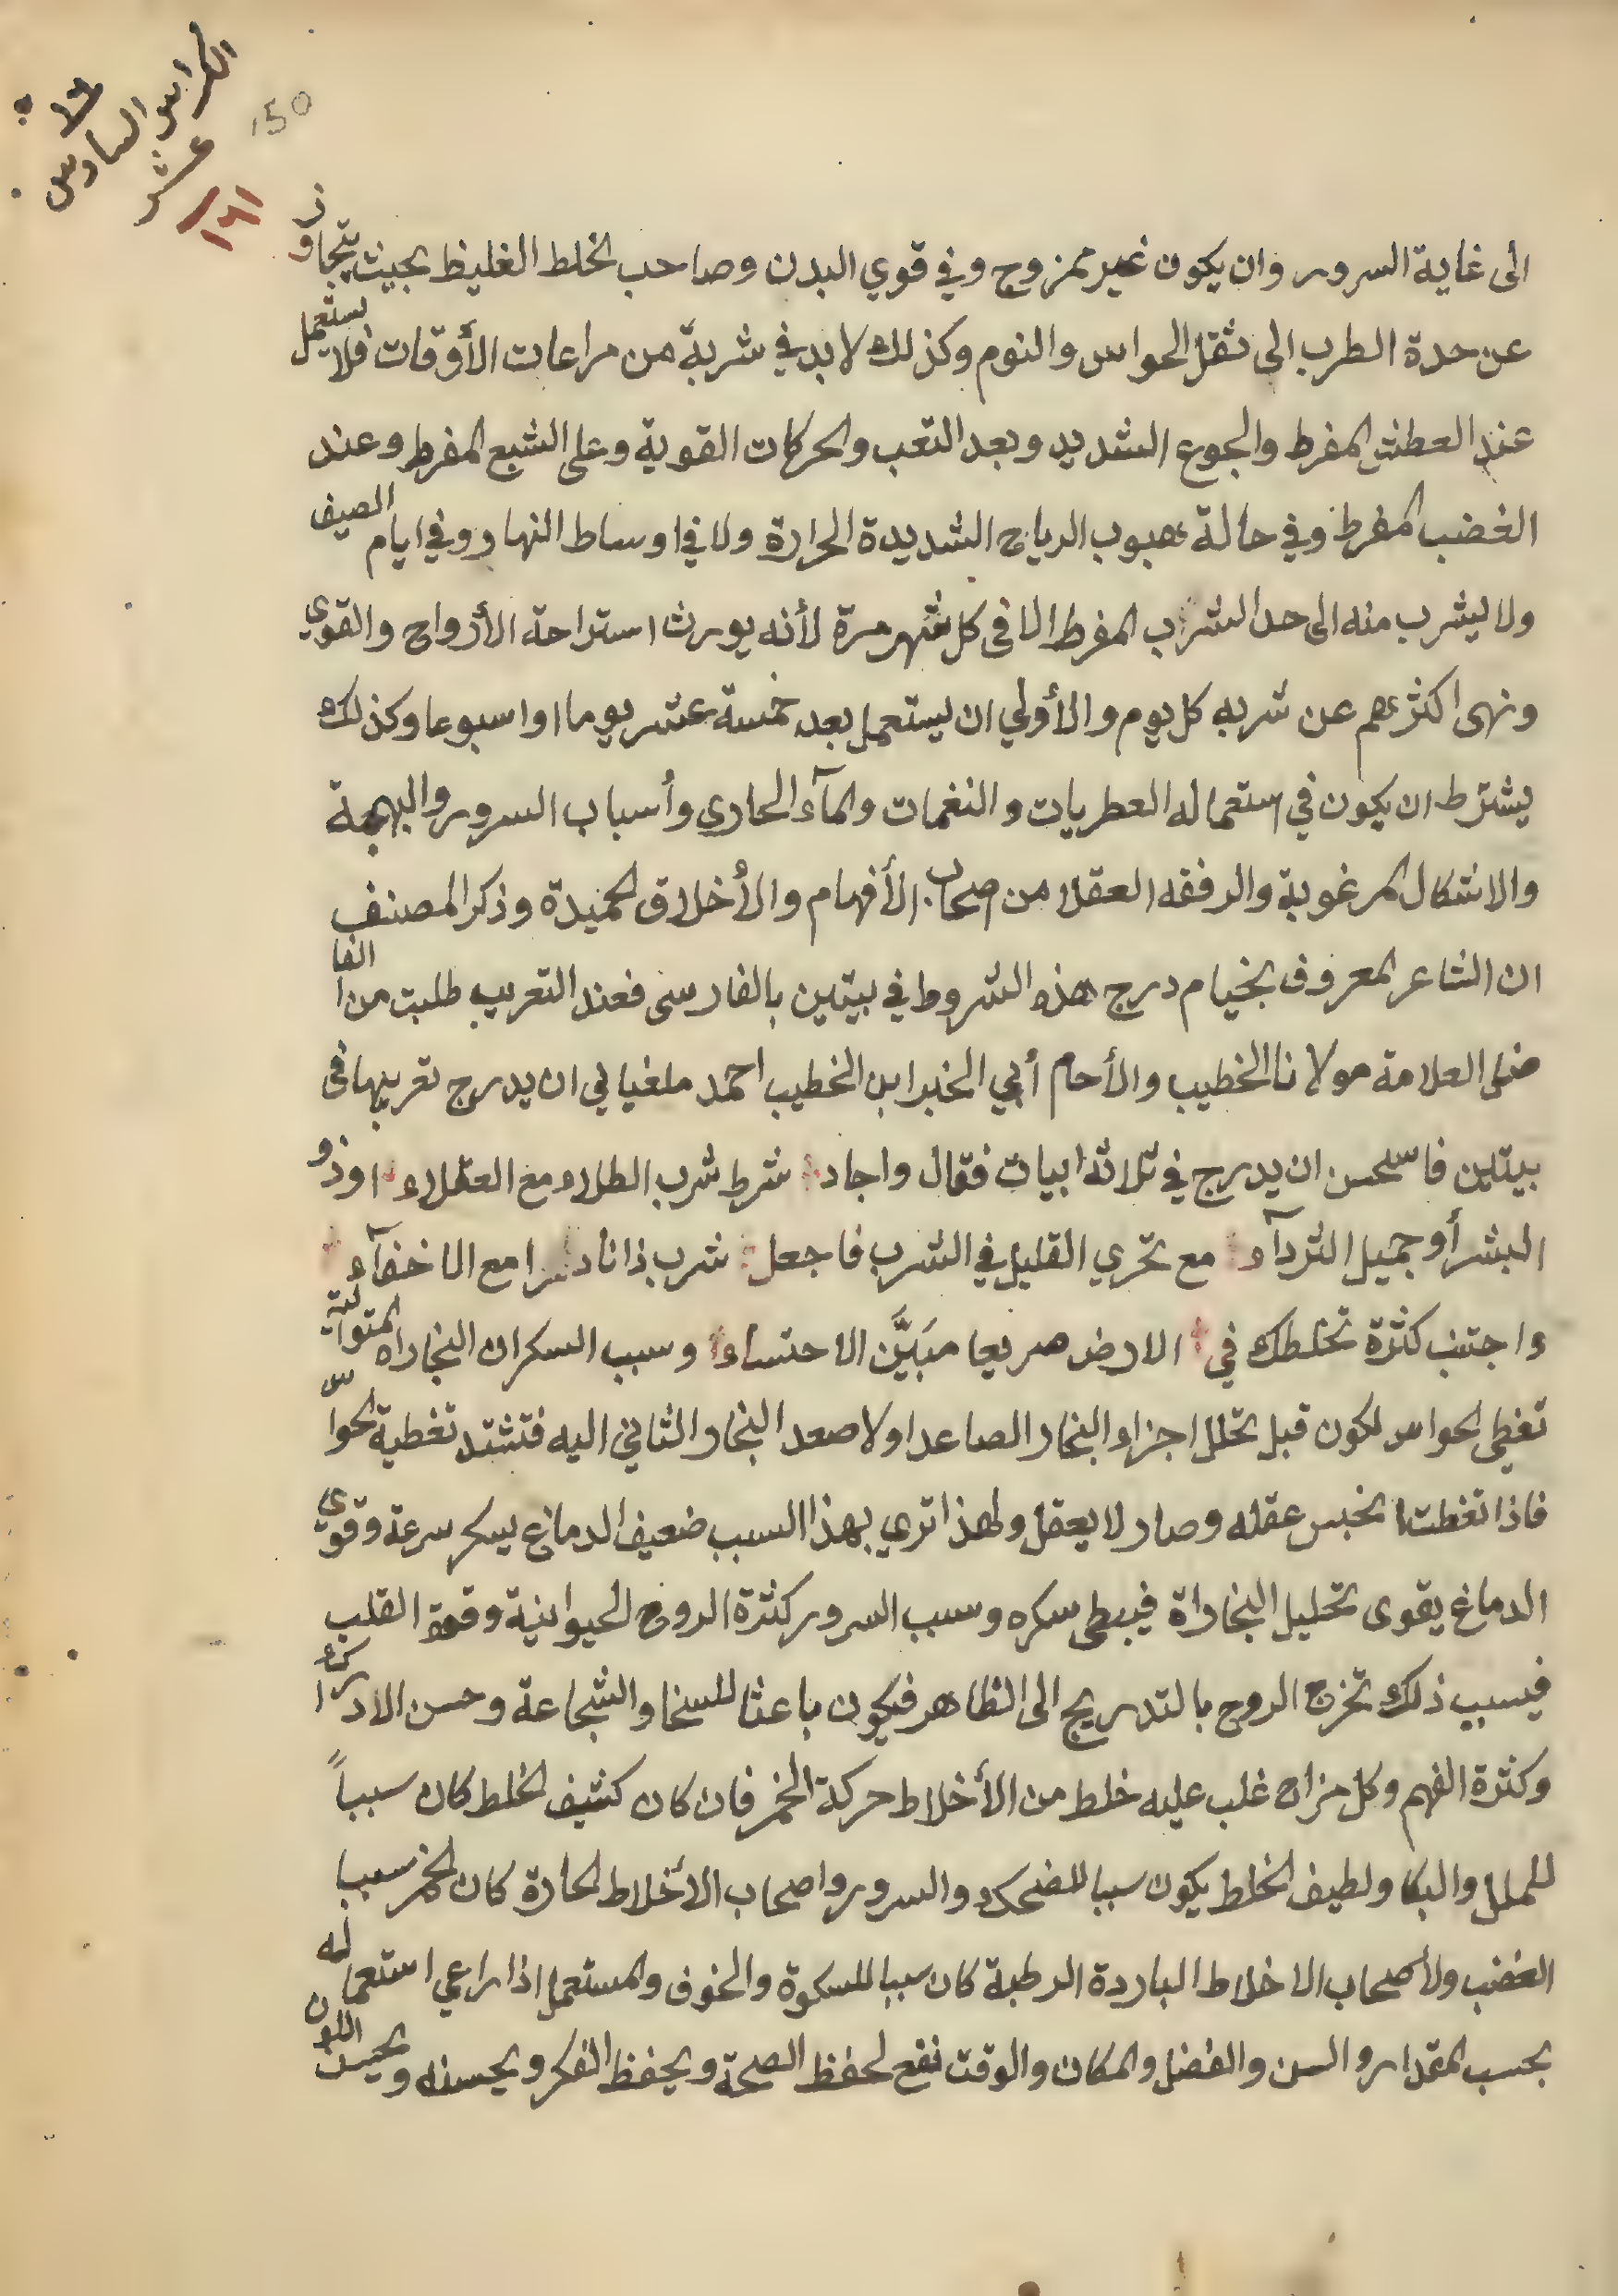 الكراس السادس
عشر
١٦
150
١٦١
الى غاية السرور وان يكون غير ممزوج وفي قوي البدن وصاحب الخلط الغليظ بحيث يتجاوز
عن حدة الطرب الى ثقل الحواس والنوم وكذلك لابد في شربة من مراعات الأوقات فلا يستعمل
عند العطش المفرط والجوع الشديد وبعد التعب والحركات القوية وعلى الشبع المفرط وعند
الغضب المفرط وفي حالة هبوب الرياح الشديدة الحرارة ولا في اوساط النهار وفي ايام الصيف
ولا يشرب منه الى حد الشراب المفرط الا في كل شهر مرة لأنه يورث استراحة الأرواح والقوي
ونهى اكثرهم عن شربه كل يوم والأولي ان يستعمل بعد خمسة عشر يوما او اسبوعا وكذلك
يشترط ان يكون في استعماله العطريات والنغمات والمآء الجاري وأسباب السرور والبهجة
والاشكال المرغوبة والرفقه العقلا من اصحاب الأفهام والأخلاق الحميدة وذكر المصنف
ان الشاعر المعروف بخيام درج هذه الشروط في بيتين بالفارسى فعند التعريب طلبت من الفا
ضل العلامة مولانا الخطيب والأمام أبي الخير ابن الخطيب احمد ان يدرج تعريبها فى
بيتين فاستحسن ان يدرج في ثلاثة ابيات فقال واجاد شرط شرب الطلاء مع العقلاء اوذو
البشر أو جميل الردآء مع تحري القليل في الشرب فاجعل شرب ذا نادرا مع الاخفآء
واجتنب كثرة تخلطك في الارض صريعا مبَيَّن الاحتساء وسبب السكران البخاراة المتوالية
تغطي الحواس لكون قبل تحلل اجزاء البخار الصاعد اولا صعد البخار الثاني اليه فتشتد تغطية الحواس
فاذا تغطت انحبس عقله وصار لا يعقل ولهذا تري بهذا السبب ضعيف الدماغ يسكر سرعة وقوي
الدماغ يقوى تحليل البخاراة فيبطى سكره وسبب السرور كثرة الروح الحيوانية وقوة القلب
فبسبب ذلك تخرج الروح بالتدريج الى الظاهر فيكون باعثا للسخا والشجاعة وحسن الادراك
وكثرة الفهم وكل مزاج غلب عليه خلط من الأخلاط حركة الخمر فان كان كثيف الخلط كان سبباً
للملل والبكا ولطيف الخلط يكون سببا للضحك والسرور واصحاب الأخلاط الحارة كان الخمر سببا
الغضب ولأصحاب الاخلاط الباردة الرطبة كان سببا للسكوة والخوف والمستعمل اذا راعي استعماله
بحسب المقدار والسن والفضل والمكان والوقت نفع لحفظ الصحة ويحفظ الفكر ويحسنه ويحسن اللون